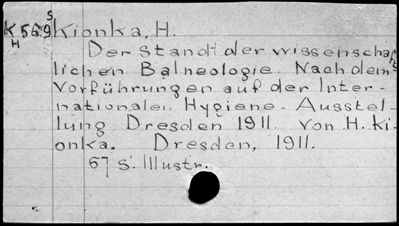 S
K 569 Kionka, H.
H
Der Stand der wissenschaft-
lichen Balneologie. Nach den
Vorführungen auf der Inter-
nationalen Hygiene-Ausstel-
lung Dresden 1911. Von H. Ki-
onka. Dresden, 1911.
67 S. Illustr.